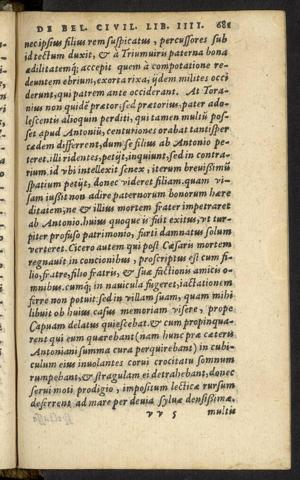 DE BEL. CIVIL. LIB. IIII. 681
nec ipsius filius rem suspicatus, percussores sub
id tectum duxit, & à Triumuiris paterna bona
ædilitatemq; accepit quem à compotatione re-
deuntem ebrium, exorta rixa, ijdem milites occi
derunt, qui patrem ante occiderant. At Tora-
nius non quidē prætor, sed prætorius, pater ado-
lescentis alioquin perditi, qui tamen multū pos-
set apud Antoniū, centuriones orabat tantisper
cædem differrent, dum se filius ab Antonio pe-
teret. illi ridentes, petijt, inquiunt, sed in contra-
rium. id vbi intellexit senex, iterum breuissimū
spatium petijt, donec videret filiam. quam vi-
sam iussit non adire paternorum bonorum hære
ditatem, ne & illius mortem frater impetraret
ab Antonio. huius quoque is fuit exitus, vt tur-
piter profuso patrimonio, furti damnatus solum
verteret. Cicero autem qui post Cæsaris mortem
regnauit in concionibus, proscriptus est cum fi-
lio, fratre, filio fratris, & suæ factionis amicis o-
mnibus. cumq; in nauicula fugeret, iactationem
ferre non potuit: sed in villam suam, quam mihi
libuit ob huius casus memoriam visere, prope
Capuam delatus quiescebat. & cum propinqua-
rent qui eum quærebant (nam hunc præ cæteris
Antoniani summa cura perquirebant) in cubi-
culum eius inuolantes corui crocitatu somnum
rumpebant, & stragulam ei detrahebant, donec
serui moti prodigio, impositum lecticæ rursum
deferrent ad mare per deuia syluæ densissimæ.
vv 5 multis